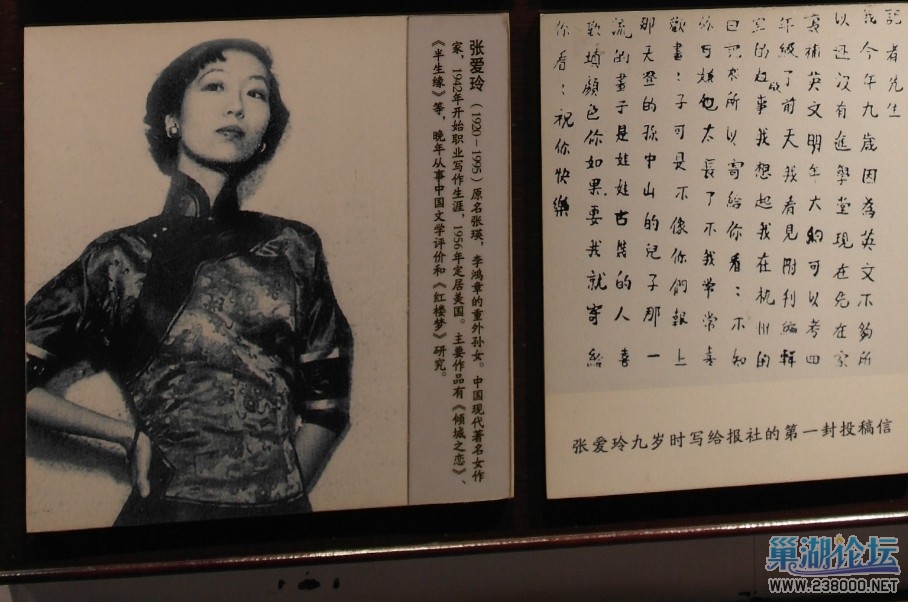 张爱玲 （1920－1995）原名张瑛，李鸿章的重外孙女。中国现代著名女作
家，1942年开始职业写作生涯，1956年定居美国。主要作品有《倾城之恋》、
《半生缘》等，晚年从事中国文学评价和《红楼梦》研究。
記者先生
我今年九歲因為英文不夠所
以还沒有進學堂現在先在家
裏補英文明年大約可以考四
年級了前天我看見附刊編輯
室的啟事我想起我在杭州的
日記來所以寄給你看：不知
你可嫌牠太長了不我常常喜
歡畫：子可是不像你們報上
那天登的孫中山的兒子那一
流的畫子是娃娃古裝的人喜
歡填顏色你如果要我就寄給
你看：祝你快樂
张爱玲九岁时写给报社的第一封投稿信
巢湖论坛
WWW.238000.NET